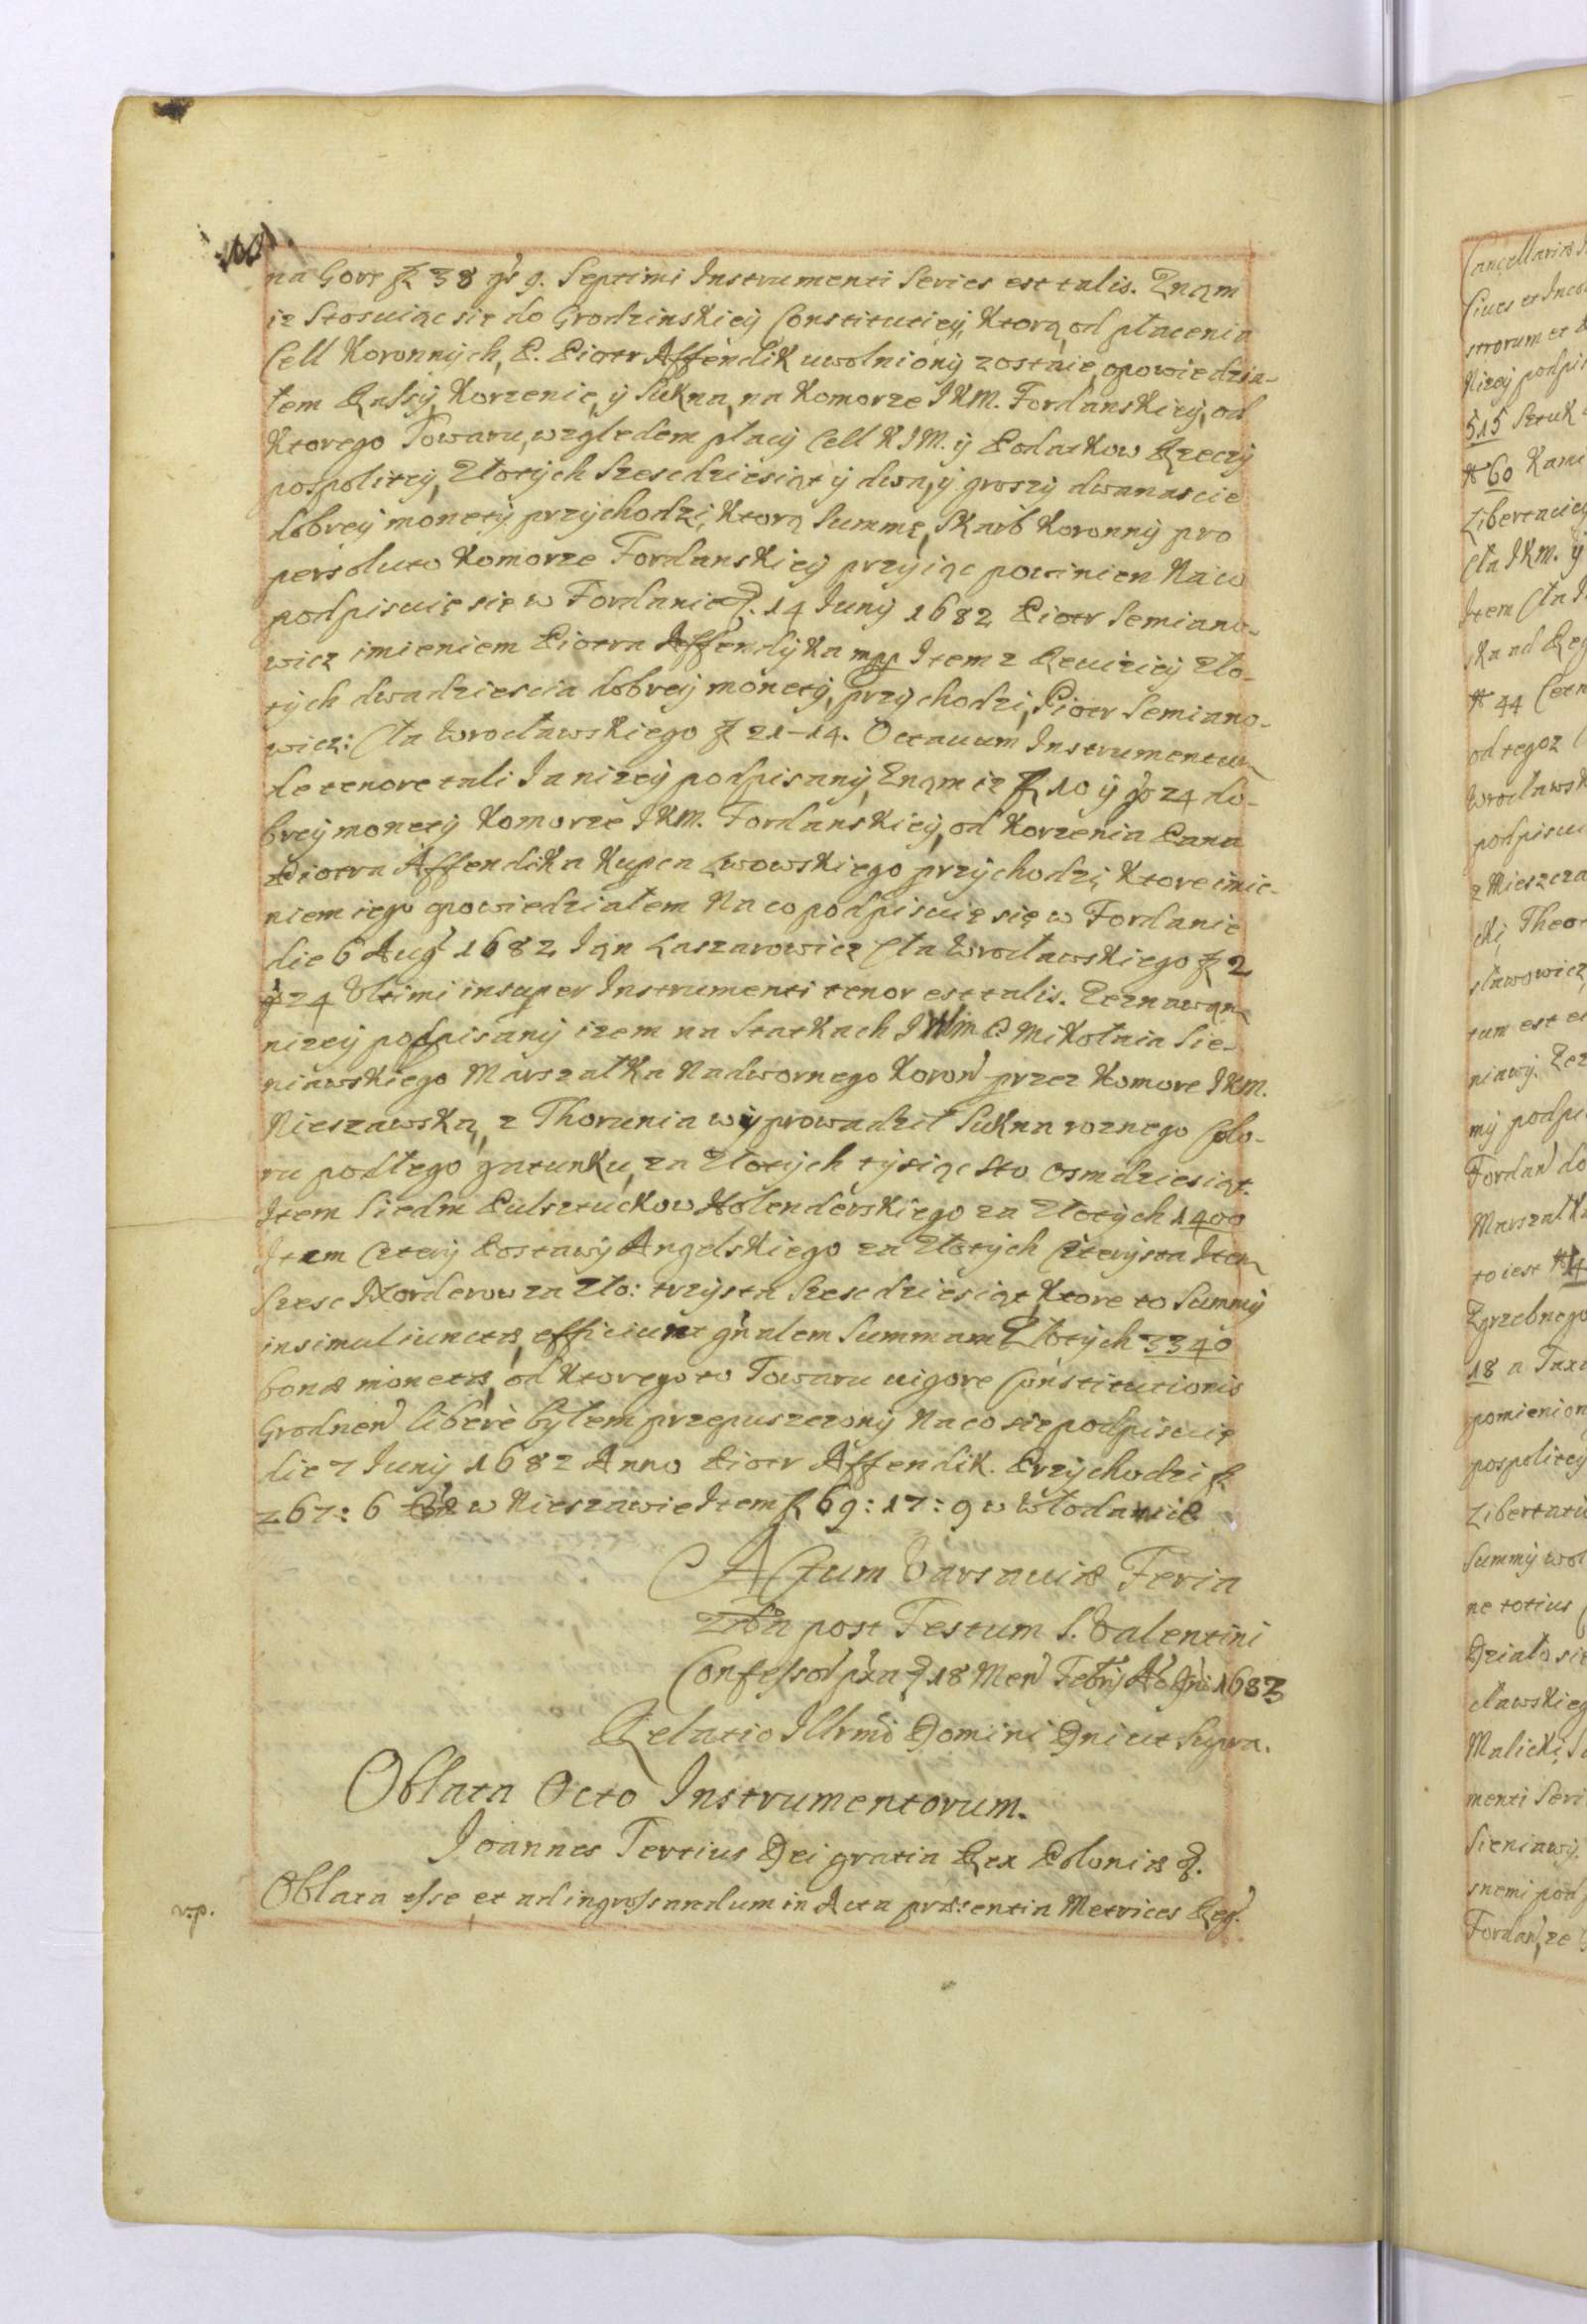 na Gorę fl 38 gr 9. Septimi Instrumenti Series est talis. Znąm
iz Stosuiąc się do Grodzinskiey Constitutiey, Ktorą od płacenia
Cell Koronnych, P. Piotr Affendik uwolniony zostaie, opowiedzia-
łem Rassy, Korzenie, y Sukna, na Komorze JKM. Fordanskiey, od
Ktorego Towaru, względem płacy Cell KJM. y Podatkow Rzeczy
pospolitey, Złotych Szescdziesiąt y dwa, y groszy dwanascie
dobrey monety przychodzi, Ktorą Summę, Skarb Koronny pro
persoluto Komorze Fordanskiey przyiąc powinien Na co
podpisuię się w Fordanie d. 14 Juny 1682 Piotr Semiano-
wicz imieniem Piotra Affendyka mpp Item z Rewiziey Zło-
tych dwadziescia dobrey monety, przychodzi, Piotr Semiano-
wicz: Cła Wrocławskiego fl 21-14. Octauum Instrumentum
de tenore tali Ia nizey podpisany, Znąm iz fl 10 y gr 24 do-
brey monety Komorze JKM. Fordanskiey, od Korzenia Pana
Piotra Affendika Kupca Lwowskiego przychodzi, Ktore imie-
niem iego opowiedziałem Na co podpisuię się w Fordanie
die 6 Aug 1682 Iąn Łaszarowicz Cła Wrocławskiego fl 2
gr 24 Vltimi insuper Instrumenti tenor est talis. Zeznawąm
nizey podpisany izem na Statkach JWJm P. Mikołaia Sie-
niawskiego Marszałka Nadwornego Koron przez Komorę JKM.
Nieszawską, z Thorunia wyprowadził Sukna roznego Colo-
ru podłego gatunku, za Złotych tysiąc sto osmdziesiąt.
Item Siedm Pulsztuckow Holenderskiego za Złotych 1400
Item Cztery Postawy Angelskiego za Złotych Czterysta Item
Szesc Morderow za Zło: trzysta Szescdziesiąt, Ktore to Summy
insimul iunctæ, efficiunt gnalem Summam Złotych 3340
bonæ monetæ, od Ktorego to Towaru uigore Constitutionis
Grodnen liberè byłem przepuszczony Na co się podpisuię
die 7 Juny 1682 Anno Piotr Affendik. Przychodzi fl
267: 6 w Nieszawie Item fl 69: 17: 9 w Włodawie
Actum Varsauiæ Feria
5ta post Festum S. Valentini
Confessor pxa d 18 Men Febry Ao Dni 1683
Relatio Illrmi Domini Dni ut Supra.
Oblata Octo Instrumentorum.
Joannes Tertius Dei gratia Rex Poloniæ &.
v.p. Oblata esse et ad ingrossandum in Acta præsentia Metrices Reg.
Cancellariæ
Ciues et Incol
strorum et
Nizey podpi
515 Sztuk
60 Kami
Libertaciey
Cła JKM. y
Item Cła J
ska ad Reg
44 Cetn
od tegoz C
Wrocławsk
podpisui
z Mieszcza
cki, Theo
sławowicz
tum est e
niawy. Zez
my podpi
Fordan do
Marszałka
to iest
Zgrzebnego
18 a Taxa
pomienion
pospolitey
Libertati
Summy wol
ne totius
Działo się
cławskieg
Malicki
menti Seri
Sieniawy.
snemi pod
Fordan, ze